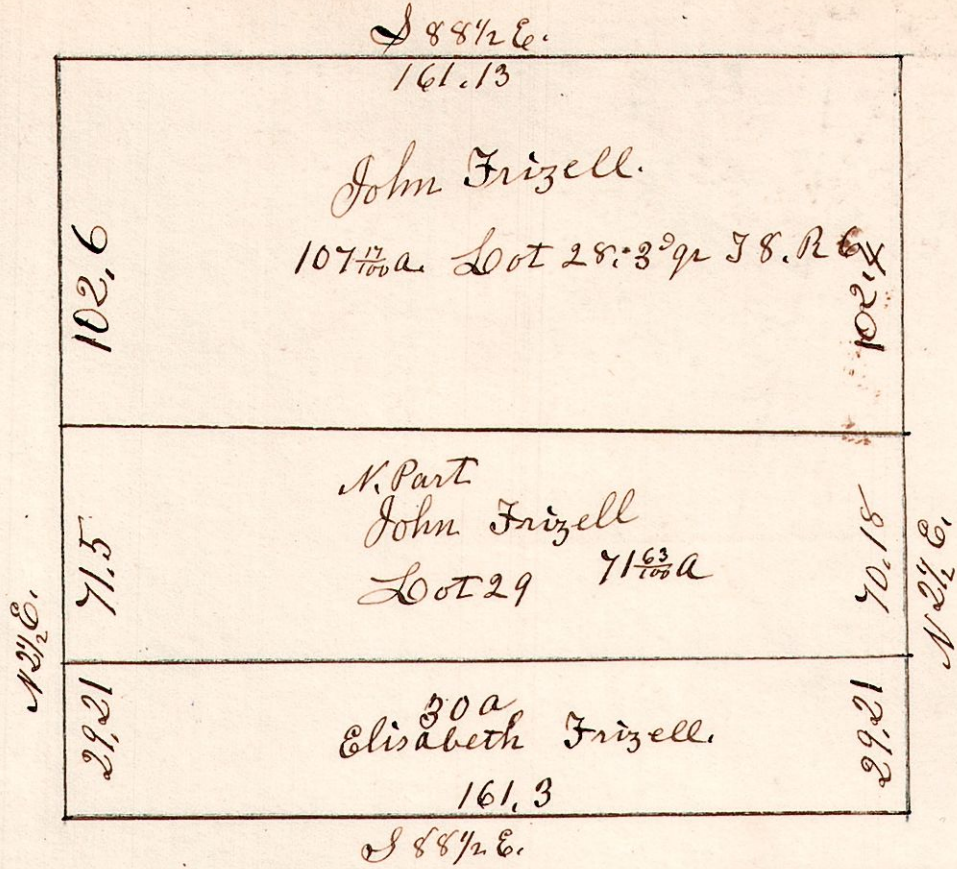 S 88½ E.
161.13
John Frizell.
107 17/100 a. Lot 28. 3d qr T 8. R 6
102,6
102,4
N. Part
John Frizell
Lot 29 71 63/100 a
71.5
70.18
N 2½ E.
N 2½ E.
30 a
Elisabeth Frizell.
29,21
29,21
161,3
S 88½ E.